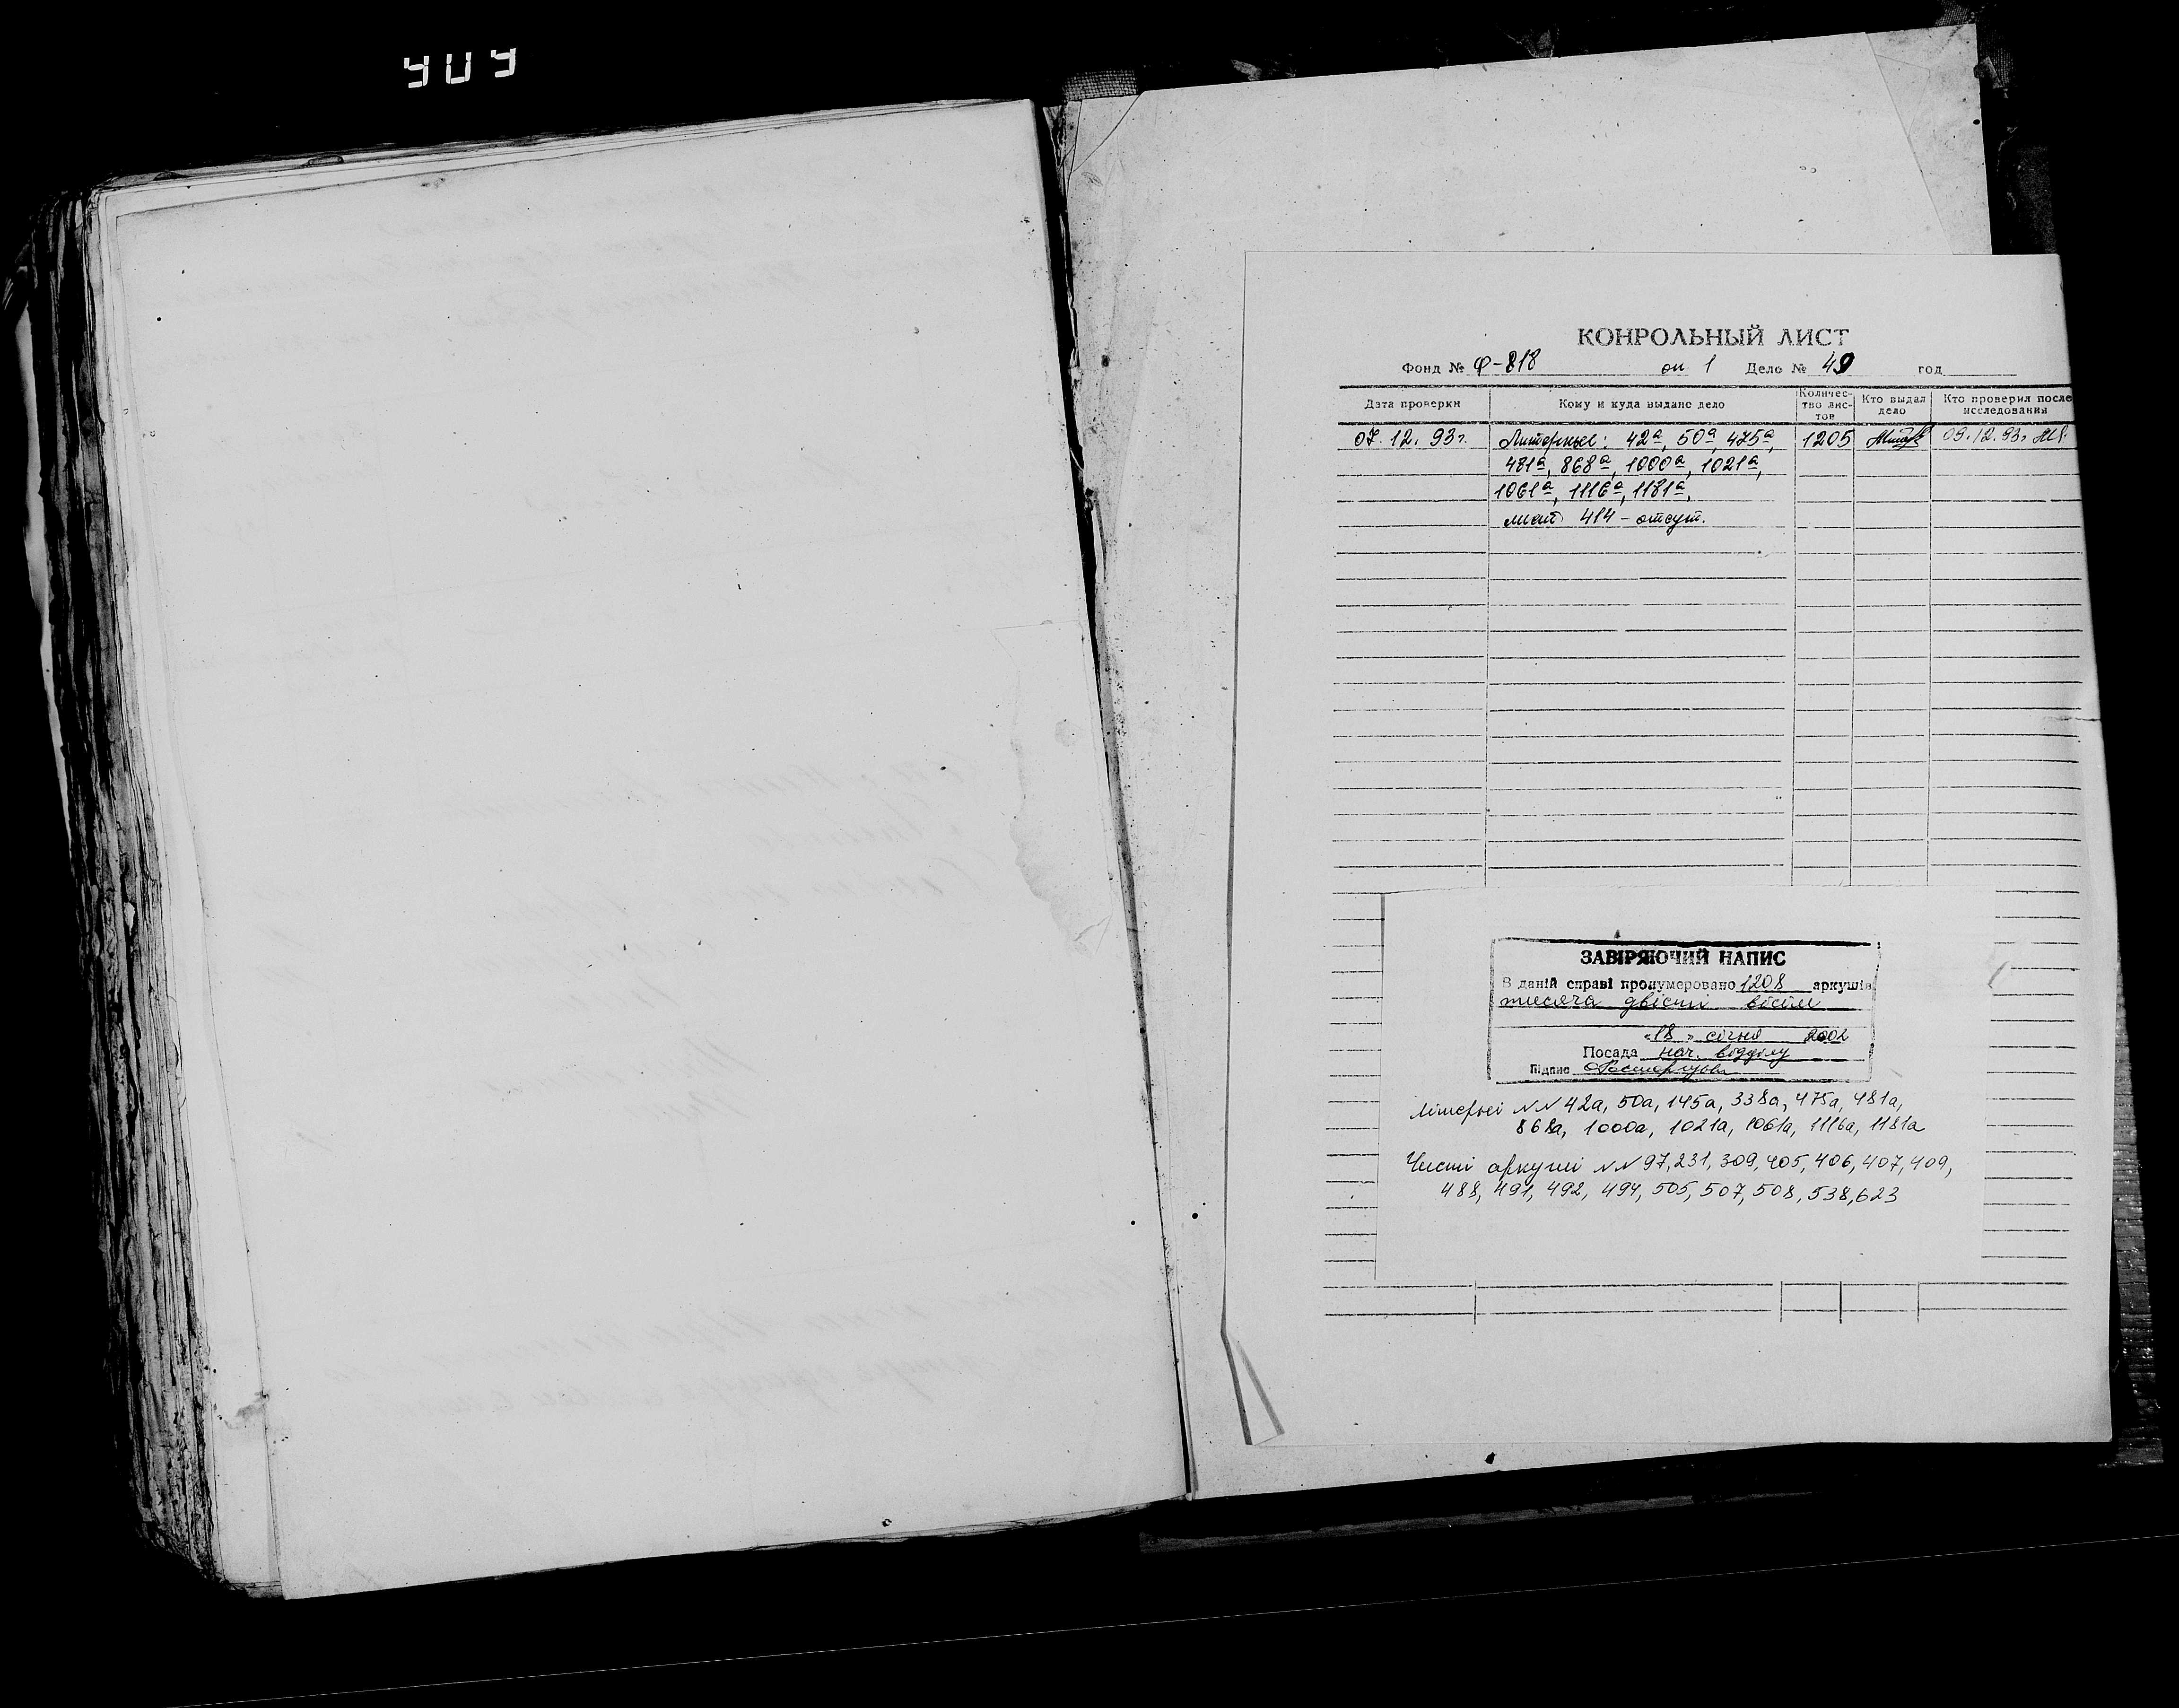 909
КОНРОЛЬНЫЙ ЛИСТ
Фонд № Ф-818 оп 1 Дело № 49 год
Дата проверки
Кому и куда выдано дело
Количес-
тво лис-
тов
Кто выдал
дело
Кто проверил после
исследования
07.12.93г. Литерные: 42а, 50а, 475а, 1205 09.12.93г
481а, 868а, 1000а, 1021а,
1061а, 1116а, 1181а,
лист 414 - отсут.
ЗАВІРЯЮЧИЙ НАПИС
В даній справі пронумеровано 1208 аркушів
тисяча двісті вісім
«18» січня 2002
Посада нач. відділу
Підпис
Літерні NN 42а, 50а, 145а, 338а, 475а, 481а,
868а, 1000а, 1021а, 1061а, 1116а, 1181а
Чисті аркуші NN 97, 231, 309, 405, 406, 407, 409,
488, 491, 492, 494, 505, 507, 508, 538, 623